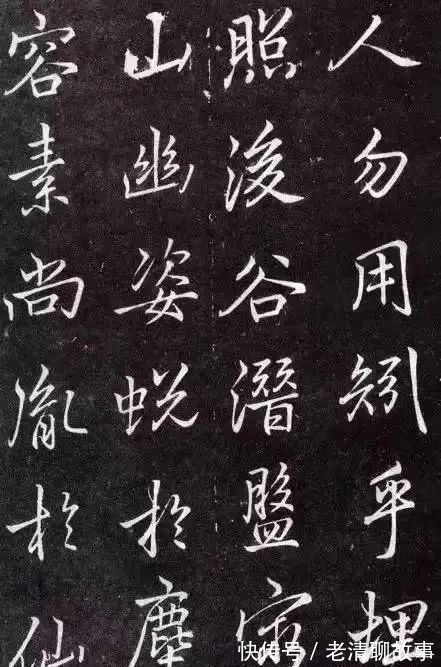 人勿用矧乎埋
照後谷潛盤
山幽姿蜕於塵
容素尚胤於仙
快传号 / 老清聊故事